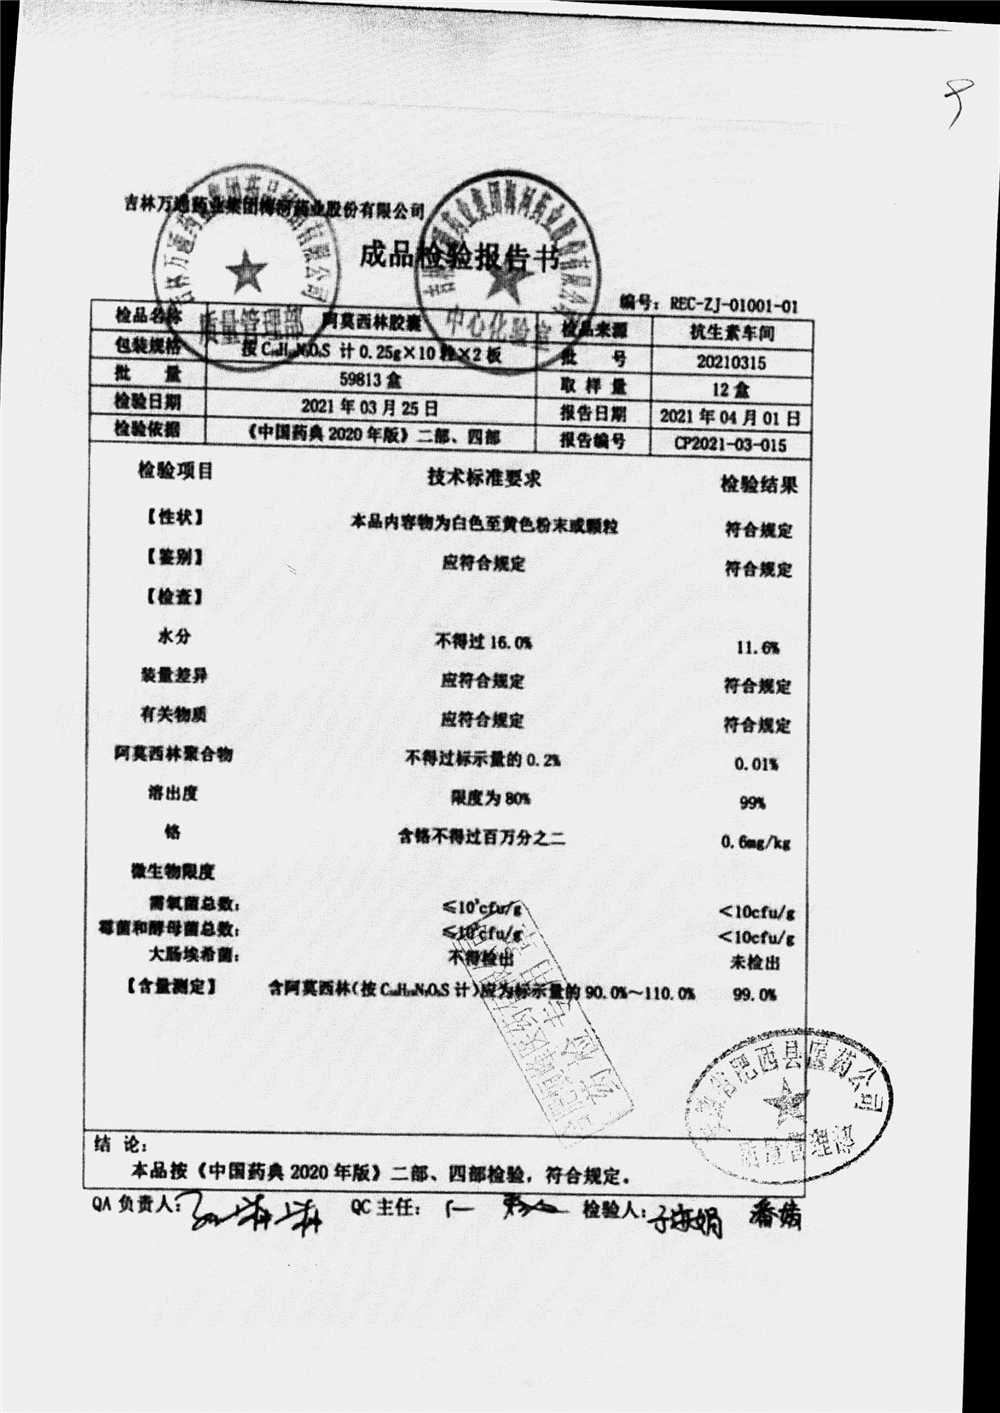 吉林万通药业集团梅河药业股份有限公司
成品检验报告书
编号：REC-ZJ-01001-01
检品名称 阿莫西林胶囊 检品来源 抗生素车间
包装规格 按C₁₆H₁₉N₃O₅S 计0.25g×10粒×2板 批 号 20210315
批 量 59813盒 取样量 12盒
检验日期 2021年03月25日 报告日期 2021年04月01日
检验依据 《中国药典2020年版》二部、四部 报告编号 CP2021-03-015
检验项目 技术标准要求 检验结果
【性状】 本品内容物为白色至黄色粉末或颗粒 符合规定
【鉴别】 应符合规定 符合规定
【检查】
水分 不得过16.0% 11.6%
装量差异 应符合规定 符合规定
有关物质 应符合规定 符合规定
阿莫西林聚合物 不得过标示量的0.2% 0.01%
溶出度 限度为80% 99%
铬 含铬不得过百万分之二 0.6mg/kg
微生物限度
需氧菌总数： ≤10³cfu/g <10cfu/g
霉菌和酵母菌总数： ≤10²cfu/g <10cfu/g
大肠埃希菌： 不得检出 未检出
【含量测定】 含阿莫西林（按C₁₆H₁₉N₃O₅S计）应为标示量的90.0%～110.0% 99.0%
结 论：
本品按《中国药典2020年版》二部、四部检验，符合规定。
QA负责人： QC主任： 检验人：
质量管理部
中心化验室
安徽省肥西县医药公司
质量管理部